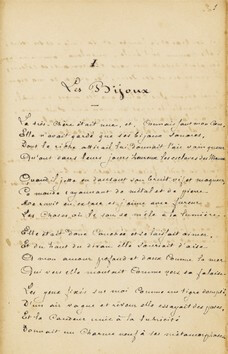 1
Les Bijoux
La très chère était nue, et, connaissant mon cœur,
Elle n'avait gardé que ses bijoux sonores,
Dont le riche attirail lui donnait l'air vainqueur
Qu'ont dans leurs jours heureux les esclaves des Mores.
Quand il jette en dansant son bruit vif et moqueur,
Ce monde rayonnant de métal et de pierre
Me ravit en extase, et j'aime avec fureur
Les choses où le son se mêle à la lumière.
Elle était donc couchée et se laissait aimer,
Et du haut du divan elle souriait d'aise
À mon amour profond et doux comme la mer,
Qui vers elle montait comme vers sa falaise.
Les yeux fixés sur moi, comme un tigre dompté,
D'un air vague et rêveur elle essayait des poses,
Et la candeur unie à la lubricité
Donnait un charme neuf à ses métamorphoses;